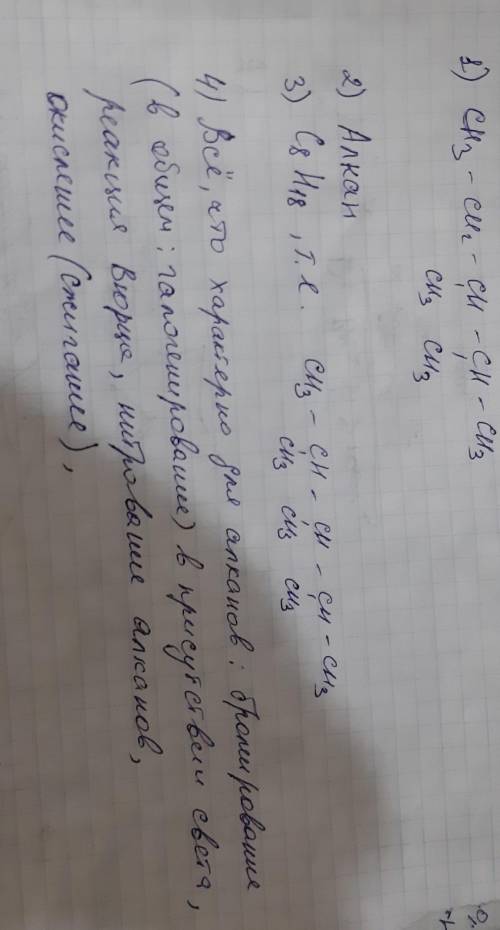 1) CH3 - CH2 - CH - CH - CH3
CH3 CH3
2) Алкан
3) C8H18, т.е. CH3 - CH - CH - CH - CH3
CH3 CH3 CH3
4) Всё, что характерно для алканов: бромирование
(в общем: галогенирование) в присутствии света,
реакция Вюрца, нитрование алканов,
окисление (сжигание),